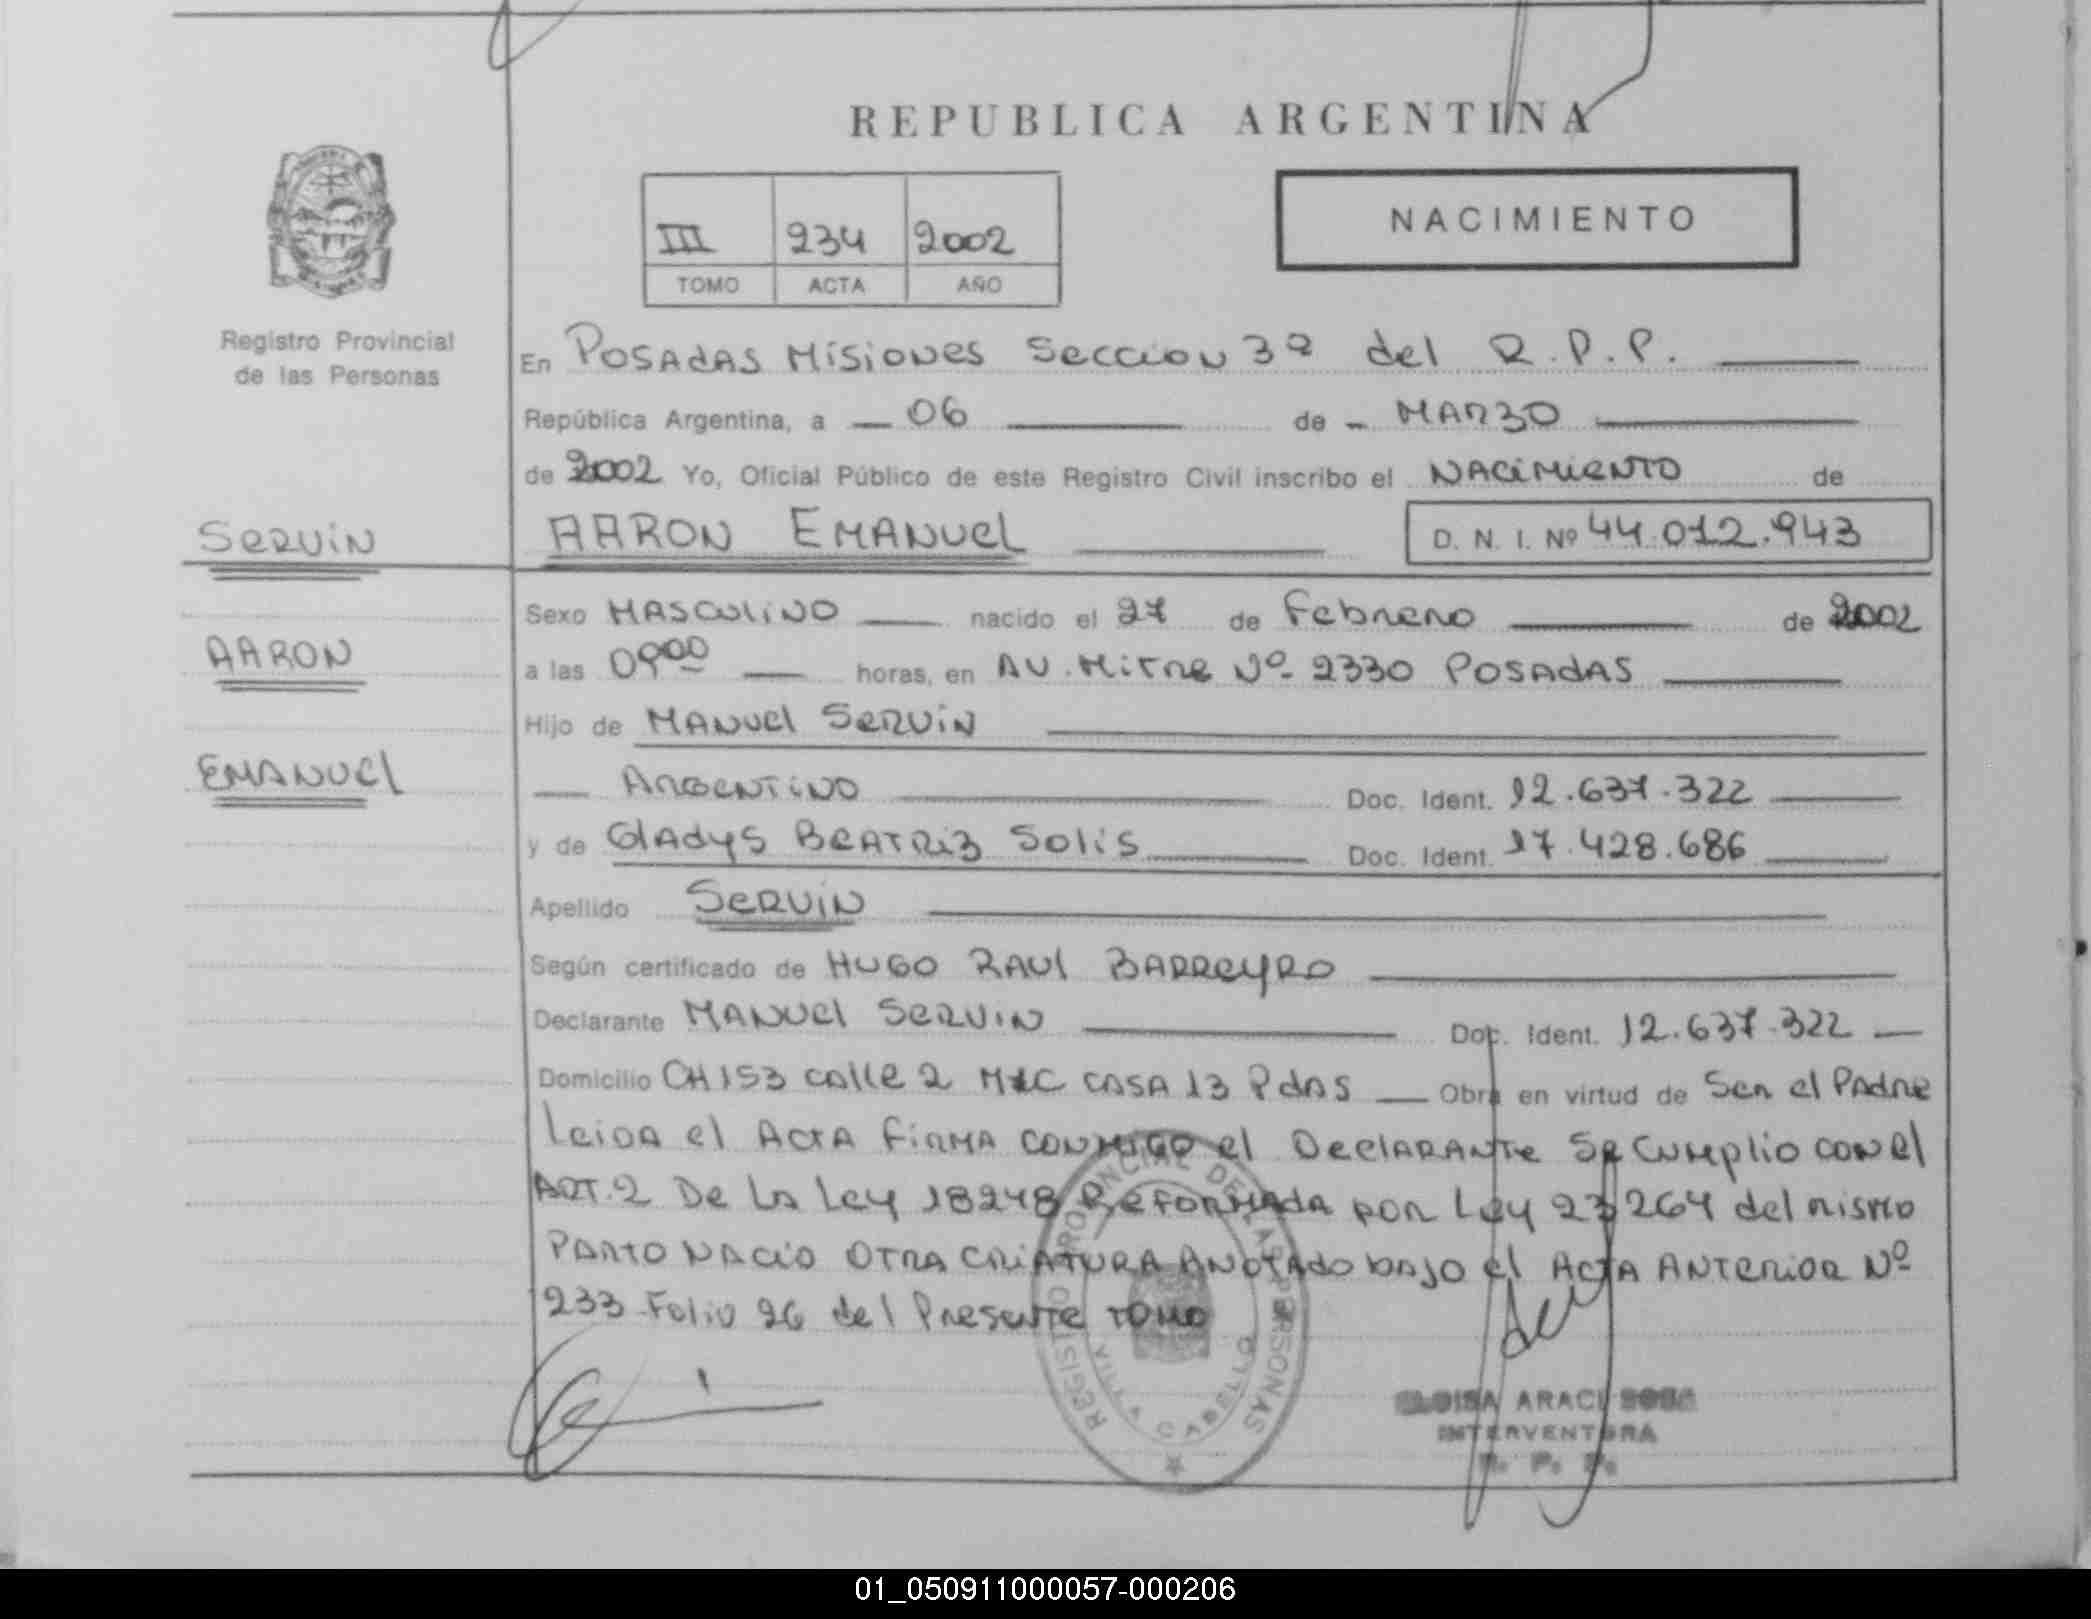 REPUBLICA ARGENTINA
NACIMIENTO
III 234 2002
TOMO ACTA AÑO
Registro Provincial
de las Personas
En POSADAS MISIONES SECCION 3ª del R.P.P.
República Argentina, a 06 de MARZO
de 2002 Yo, Oficial Público de este Registro Civil inscribo el NACIMIENTO de
SERVIN AARON EMANUEL D. N. I. Nº 44.012.943
Sexo MASCULINO nacido el 27 de Febrero de 2002
AARON
a las 09⁰⁰ horas, en AV. MITRE Nº 2330 POSADAS
Hijo de MANUEL SERVIN
EMANUEL
ARGENTINO Doc. Ident. 12.637.322
y de GLADYS BEATRIZ SOLIS Doc. Ident. 17.428.686
Apellido SERVIN
Según certificado de HUGO RAUL BARREYRO
Declarante MANUEL SERVIN Doc. Ident. 12.637.322
Domicilio CH 153 CALLE 2 CASA 13 PdAS Obra en virtud de Ser el PAdre
Leida el ACTA FIRMA CONMIGO el DeclARANTe Se Cumplio CON el
ART. 2 De LA Ley 18248 ReFORMAdA POR Ley 23264 del MISMO
PARTO NACIO OTRA CRIATURA ANOTADO BAJO el ACTA ANTERIOR Nº
233 Folio 26 del Presente TOMO
REGISTRO PROVINCIAL DE LAS PERSONAS
VILLA CABELLO
ELOISA ARACI SOSA
INTERVENTORA
R. P. P.
01_050911000057-000206